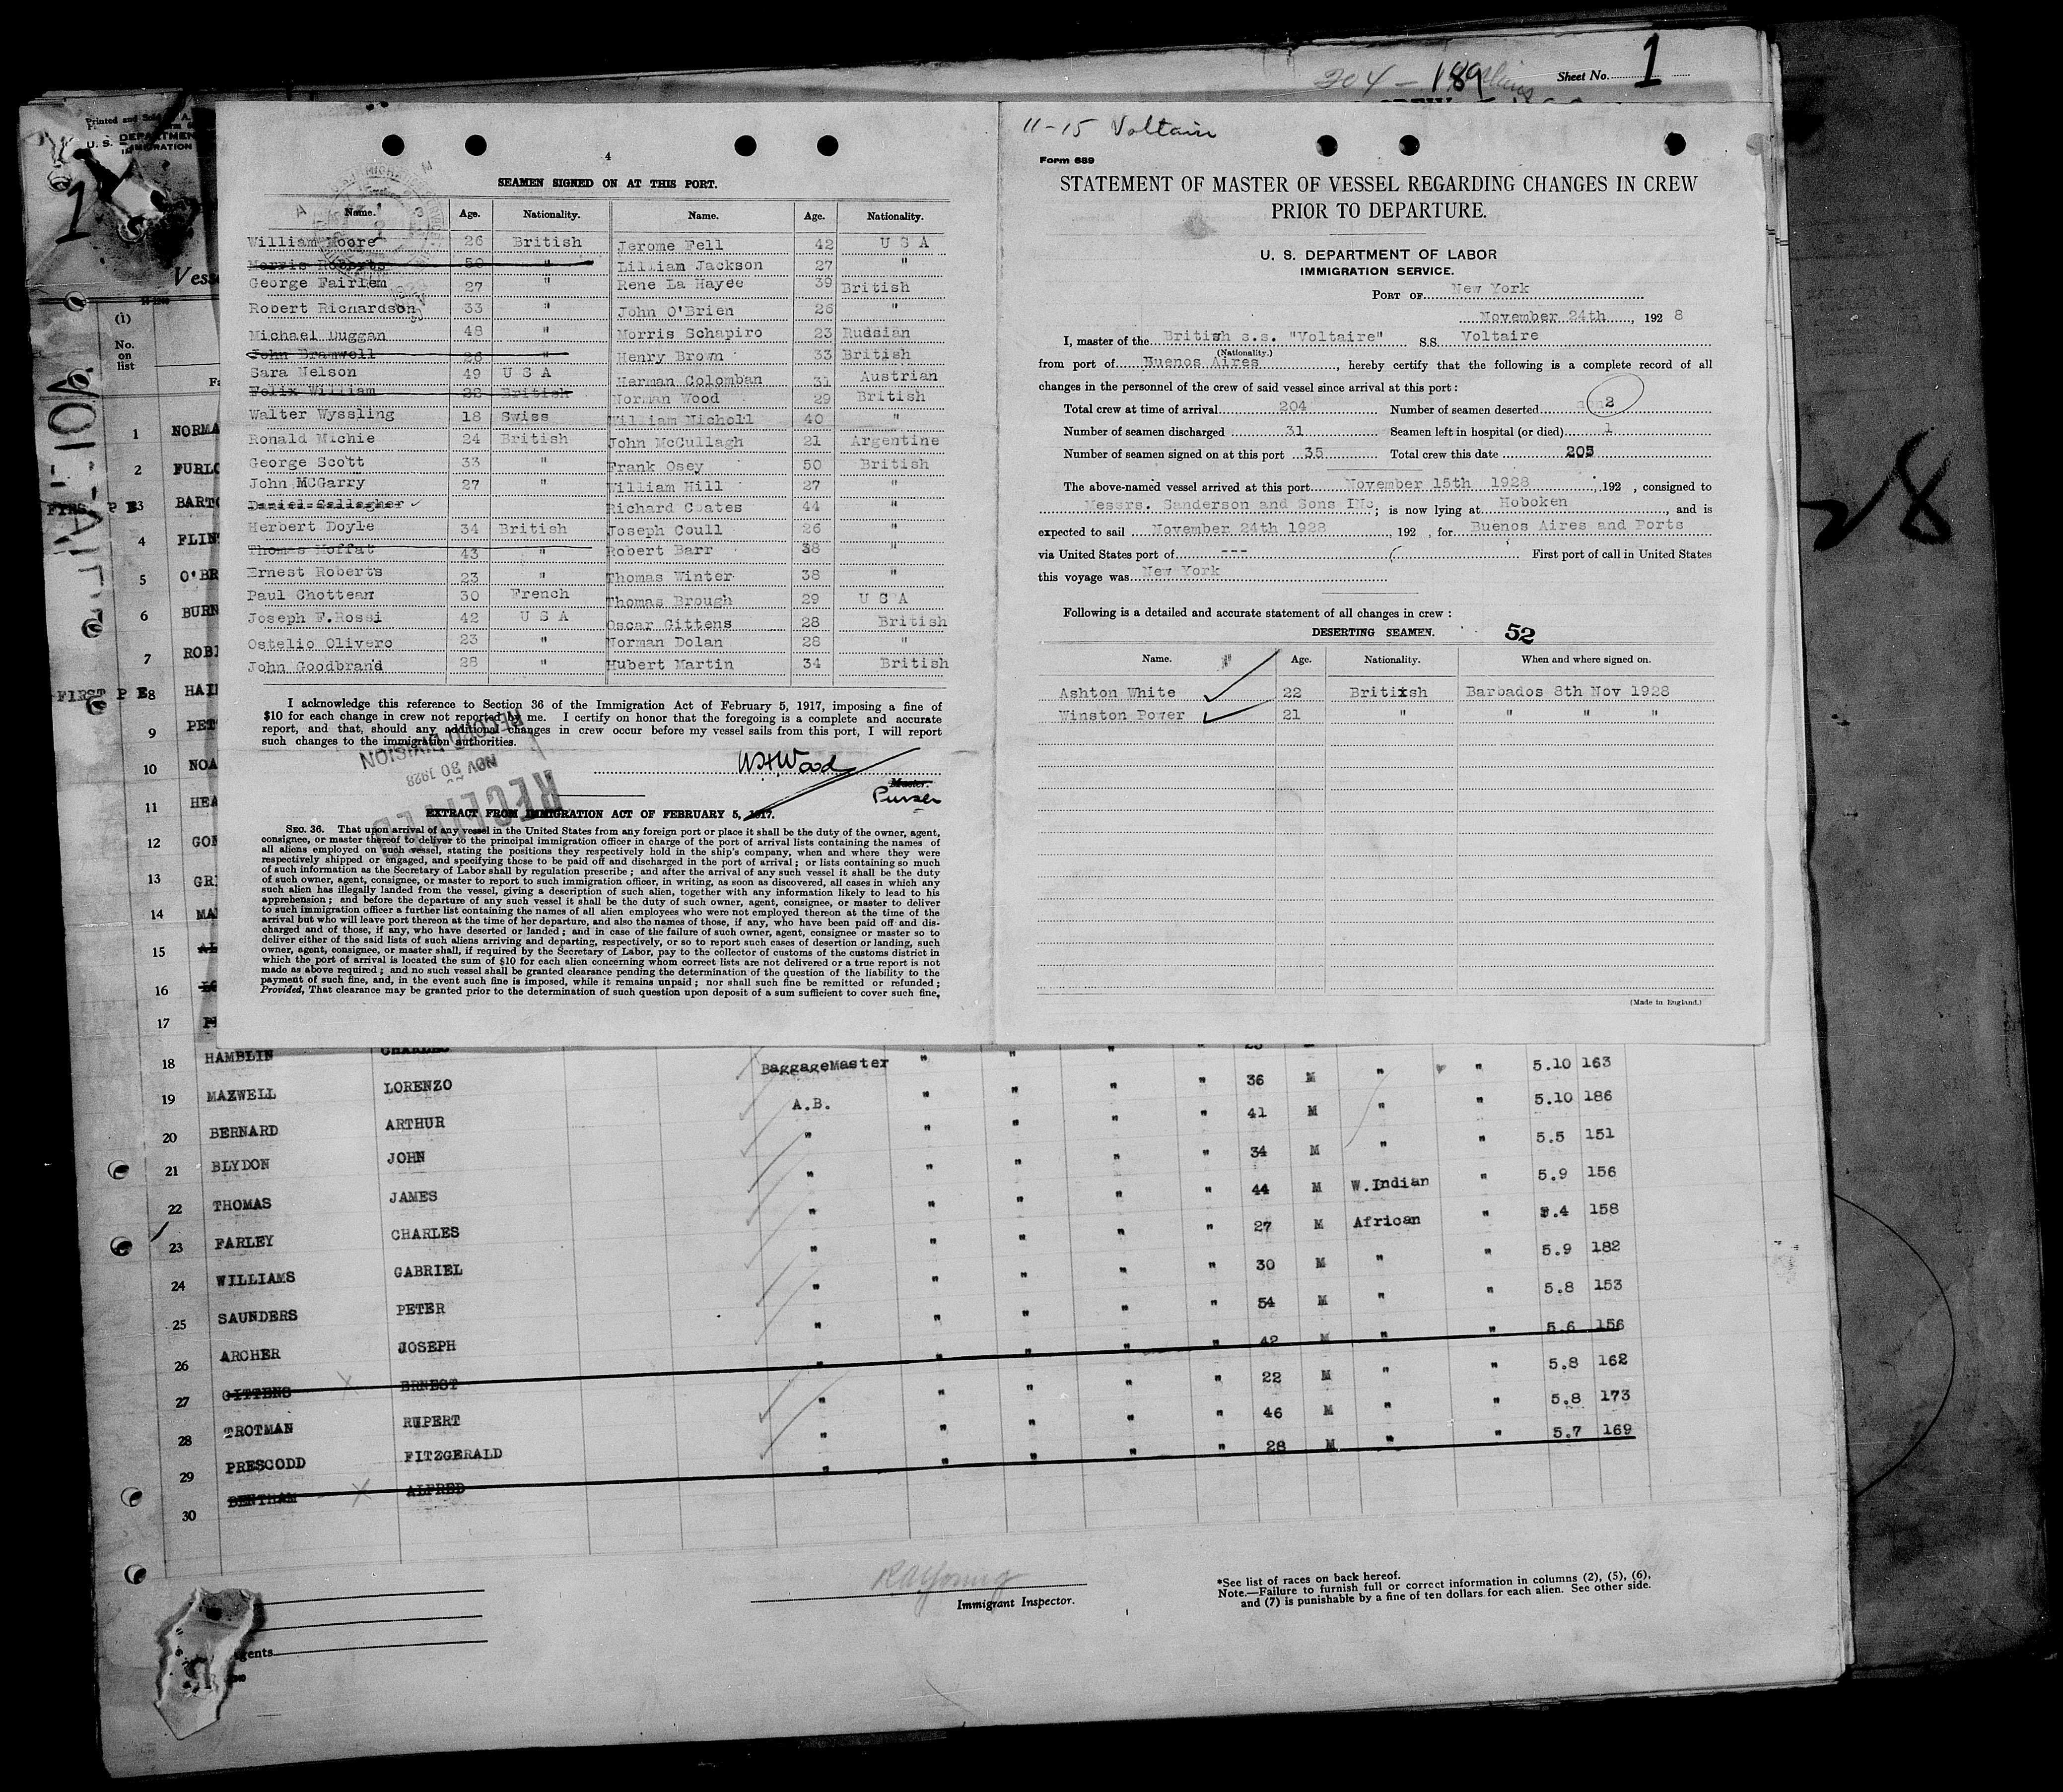 204 - 189
Sheet No. 1
Printed and Sold
U. S. DEPARTMEN
IMMIGRATION
Vess
(1)
No.
on
list
4
SEAMEN SIGNED ON AT THIS PORT.
Name. Age. Nationality. Name. Age. Nationality.
William Moore 26 British Jerome Fell 42 U S A
Morris Roberts 50 " Lillian Jackson 27 "
George Fairlem 27 " Rene La Hayee 39 British
Robert Richardson 33 " John O'Brien 26 "
Michael Duggan 48 " Morris Schapiro 23 Russian
John Bramwell 26 " Henry Brown 33 British
Sara Nelson 49 U S A Herman Colomban 31 Austrian
Felix William 28 British Norman Wood 29 British
Walter Wyssling 18 Swiss William Nicholl 40 "
Ronald Michie 24 British John McCullagh 21 Argentine
George Scott 33 " Frank Osey 50 British
John MCGarry 27 " William Hill 27 "
Daniel Gallagher Richard Coates 44 "
Herbert Doyle 34 British Joseph Coull 26 "
Thomas Moffat 43 " Robert Barr 38 "
Ernest Roberts 23 " Thomas Winter 38 "
Paul Chottean 30 French Thomas Brough 29 U S A
Joseph F.Rossi 42 U S A Oscar Gittens 28 British
Ostelio Olivero 23 " Norman Dolan 28 "
John Goodbrand 28 " Hubert Martin 34 British
I acknowledge this reference to Section 36 of the Immigration Act of February 5, 1917, imposing a fine of
$10 for each change in crew not reported by me. I certify on honor that the foregoing is a complete and accurate
report, and that, should any additional changes in crew occur before my vessel sails from this port, I will report
such changes to the immigration authorities.
RECEIVED
NOV 30 1928
RECORD DIVISION
W.H.Wood
Master.
Purser
EXTRACT FROM IMMIGRATION ACT OF FEBRUARY 5, 1917.
SEC. 36. That upon arrival of any vessel in the United States from any foreign port or place it shall be the duty of the owner, agent,
consignee, or master thereof to deliver to the principal immigration officer in charge of the port of arrival lists containing the names of
all aliens employed on such vessel, stating the positions they respectively hold in the ship's company, when and where they were
respectively shipped or engaged, and specifying those to be paid off and discharged in the port of arrival; or lists containing so much
of such information as the Secretary of Labor shall by regulation prescribe; and after the arrival of any such vessel it shall be the duty
of such owner, agent, consignee, or master to report to such immigration officer, in writing, as soon as discovered, all cases in which any
such alien has illegally landed from the vessel, giving a description of such alien, together with any information likely to lead to his
apprehension; and before the departure of any such vessel it shall be the duty of such owner, agent, consignee, or master to deliver
to such immigration officer a further list containing the names of all alien employees who were not employed thereon at the time of the
arrival but who will leave port thereon at the time of her departure, and also the names of those, if any, who have been paid off and dis-
charged and of those, if any, who have deserted or landed; and in case of the failure of such owner, agent, consignee or master so to
deliver either of the said lists of such aliens arriving and departing, respectively, or so to report such cases of desertion or landing, such
owner, agent, consignee, or master shall, if required by the Secretary of Labor, pay to the collector of customs of the customs district in
which the port of arrival is located the sum of $10 for each alien concerning whom correct lists are not delivered or a true report is not
made as above required; and no such vessel shall be granted clearance pending the determination of the question of the liability to the
payment of such fine, and, in the event such fine is imposed, while it remains unpaid; nor shall such fine be remitted or refunded;
Provided, That clearance may be granted prior to the determination of such question upon deposit of a sum sufficient to cover such fine.
11-15 Voltaire
Form 689
STATEMENT OF MASTER OF VESSEL REGARDING CHANGES IN CREW
PRIOR TO DEPARTURE.
U. S. DEPARTMENT OF LABOR
IMMIGRATION SERVICE.
PORT OF New York
November 24th, 192 8
I, master of the British s.s. "Voltaire" S.S. Voltaire
(Nationality.)
from port of Buenos Aires, hereby certify that the following is a complete record of all
changes in the personnel of the crew of said vessel since arrival at this port:
Total crew at time of arrival 204 Number of seamen deserted 2
Number of seamen discharged 31 Seamen left in hospital (or died) 1
Number of seamen signed on at this port 35 Total crew this date 205
The above-named vessel arrived at this port November 15th 1928, 192 , consigned to
Messrs. Sanderson and Sons INc; is now lying at Hoboken, and is
expected to sail November 24th 1928, 192 , for Buenos Aires and Ports
via United States port of --- First port of call in United States
this voyage was New York
Following is a detailed and accurate statement of all changes in crew:
DESERTING SEAMEN. 52
Name. Age. Nationality. When and where signed on.
Ashton White 22 Britixsh Barbados 8th Nov 1928
Winston Power 21 " " " "
(Made in England.)
VOLTAIRE
28
1 NORMA
2 FURLO
FIRST P E 3 BARTO
4 FLIN
5 O'BR
6 BURN
7 ROBI
FIRST P E 8 HAI
9 PET
10 NOA
11 HEA
12 GON
13 GRI
14 MA
15
16
17
18 HAMBLIN CHARLES BaggageMaster " " " " 36 M " " 5.10 163
19 MAXWELL LORENZO A.B. " " " " 41 M " " 5.10 186
20 BERNARD ARTHUR " " " " " 34 M " " 5.5 151
21 BLYDON JOHN " " " " " 44 M W.Indian " 5.9 156
22 THOMAS JAMES " " " " " 27 M African " 5.4 158
23 FARLEY CHARLES " " " " " 30 M " " 5.9 182
24 WILLIAMS GABRIEL " " " " " 54 M " " 5.8 153
25 SAUNDERS PETER " " " " " 42 M " " 5.6 156
26 ARCHER JOSEPH " " " " " 22 M " " 5.8 162
27 GITTENS ERNEST " " " " " 46 M " " 5.8 173
28 TROTMAN RUPERT " " " " " 28 M " " 5.7 169
29 PRESCODD FITZGERALD
30 BENTHAM ALFRED
gents
Immigrant Inspector.
*See list of races on back hereof.
Note.—Failure to furnish full or correct information in columns (2), (5), (6),
and (7) is punishable by a fine of ten dollars for each alien. See other side.